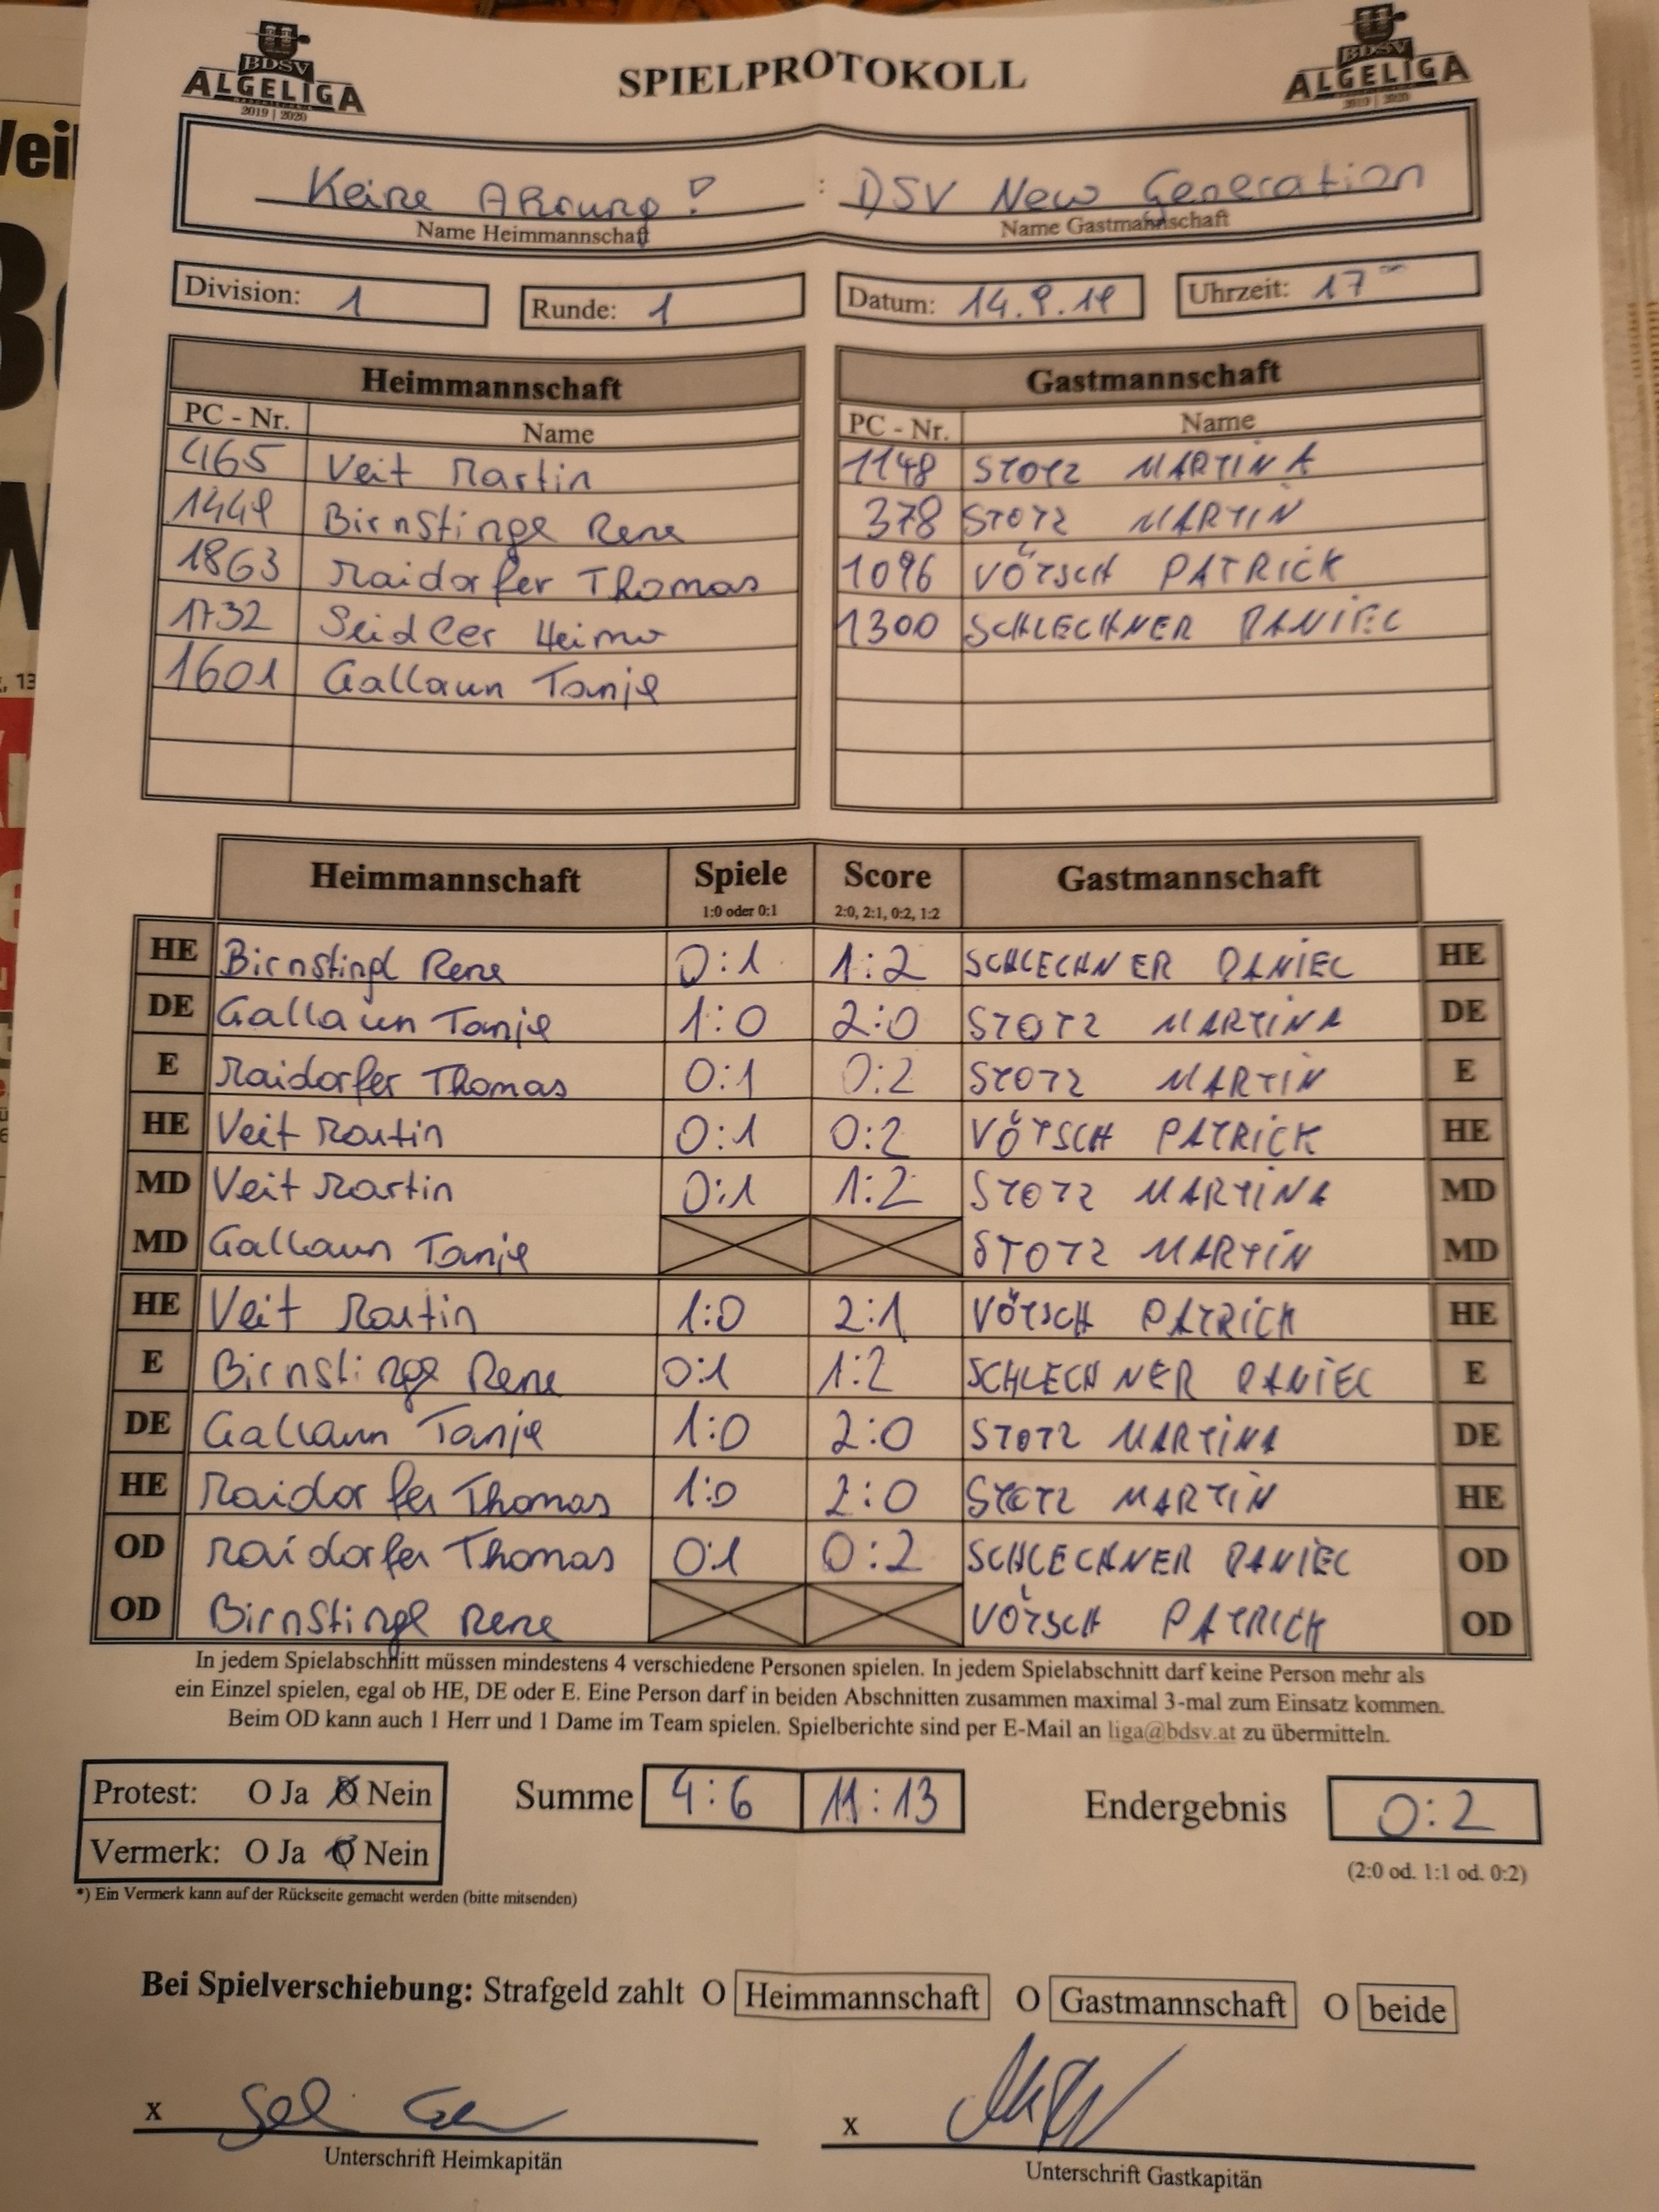 BDSV
ALGELIGA
2019 | 2020
SPIELPROTOKOLL
BDSV
ALGELIGA
2019 | 2020
Keine Ahnung! : DSV New Generation
Name Heimmannschaft Name Gastmannschaft
Division: 1 Runde: 1 Datum: 14.9.19 Uhrzeit: 17 00
Heimmannschaft Gastmannschaft
PC - Nr. Name PC - Nr. Name
465 Veit Martin 1148 STOTZ MARTINA
1449 Birnstingl Rene 378 STOTZ MARTIN
1863 Maidorfer Thomas 1096 VÖTSCH PATRICK
1732 Seidler Heimo 1300 SCHLECHNER DANIEL
1601 Gallaun Tanja
Heimmannschaft Spiele Score Gastmannschaft
1:0 oder 0:1 2:0, 2:1, 0:2, 1:2
HE Birnstingl Rene 0:1 1:2 SCHLECHNER DANIEL HE
DE Gallaun Tanja 1:0 2:0 STOTZ MARTINA DE
E Maidorfer Thomas 0:1 0:2 STOTZ MARTIN E
HE Veit Martin 0:1 0:2 VÖTSCH PATRICK HE
MD Veit Martin 0:1 1:2 STOTZ MARTINA MD
MD Gallaun Tanja STOTZ MARTIN MD
HE Veit Martin 1:0 2:1 VÖTSCH PATRICK HE
E Birnstingl Rene 0:1 1:2 SCHLECHNER DANIEL E
DE Gallaun Tanja 1:0 2:0 STOTZ MARTINA DE
HE Maidorfer Thomas 1:0 2:0 STOTZ MARTIN HE
OD Maidorfer Thomas 0:1 0:2 SCHLECHNER DANIEL OD
OD Birnstingl Rene VÖTSCH PATRICK OD
In jedem Spielabschnitt müssen mindestens 4 verschiedene Personen spielen. In jedem Spielabschnitt darf keine Person mehr als
ein Einzel spielen, egal ob HE, DE oder E. Eine Person darf in beiden Abschnitten zusammen maximal 3-mal zum Einsatz kommen.
Beim OD kann auch 1 Herr und 1 Dame im Team spielen. Spielberichte sind per E-Mail an liga@bdsv.at zu übermitteln.
Protest: O Ja O Nein Summe 4:6 11:13 Endergebnis 0:2
Vermerk: O Ja O Nein (2:0 od. 1:1 od. 0:2)
*) Ein Vermerk kann auf der Rückseite gemacht werden (bitte mitsenden)
Bei Spielverschiebung: Strafgeld zahlt O Heimmannschaft O Gastmannschaft O beide
x x
Unterschrift Heimkapitän Unterschrift Gastkapitän